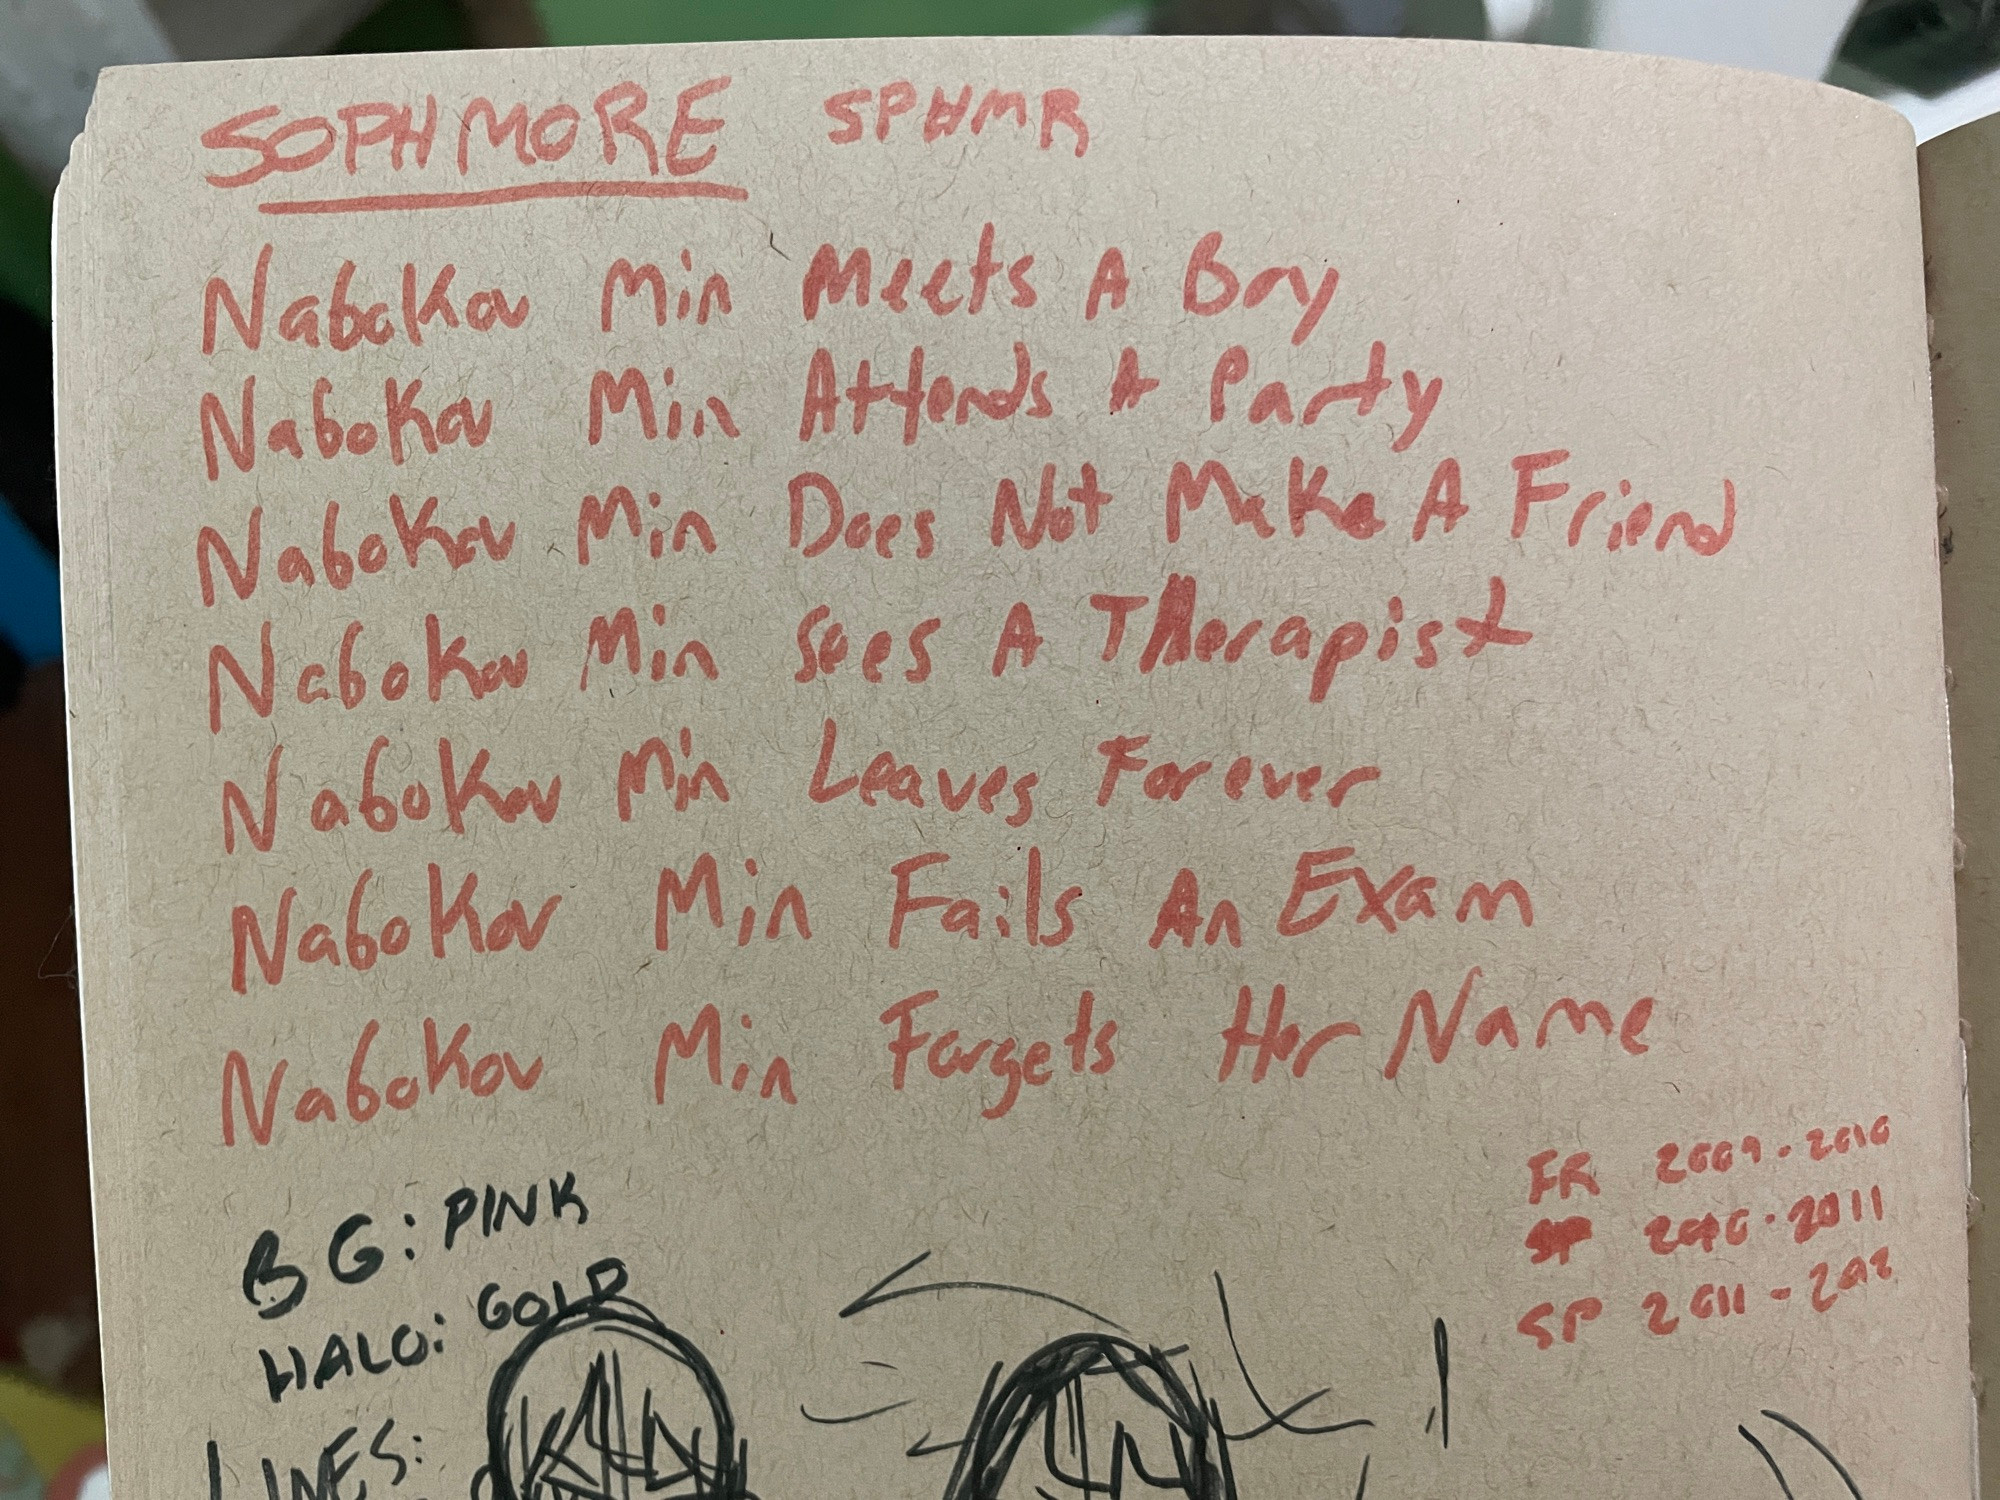 SOPHMORE SPHMR
Nabokov Min Meets A Boy
Nabokov Min Attends A Party
Nabokov Min Does Not Make A Friend
Nabokov Min Sees A Therapist
Nabokov Min Leaves Forever
Nabokov Min Fails An Exam
Nabokov Min Forgets Her Name
FR 2009-2010
SP 2010-2011
SP 2011-202
BG: PINK
HALO: GOLD
LINES: